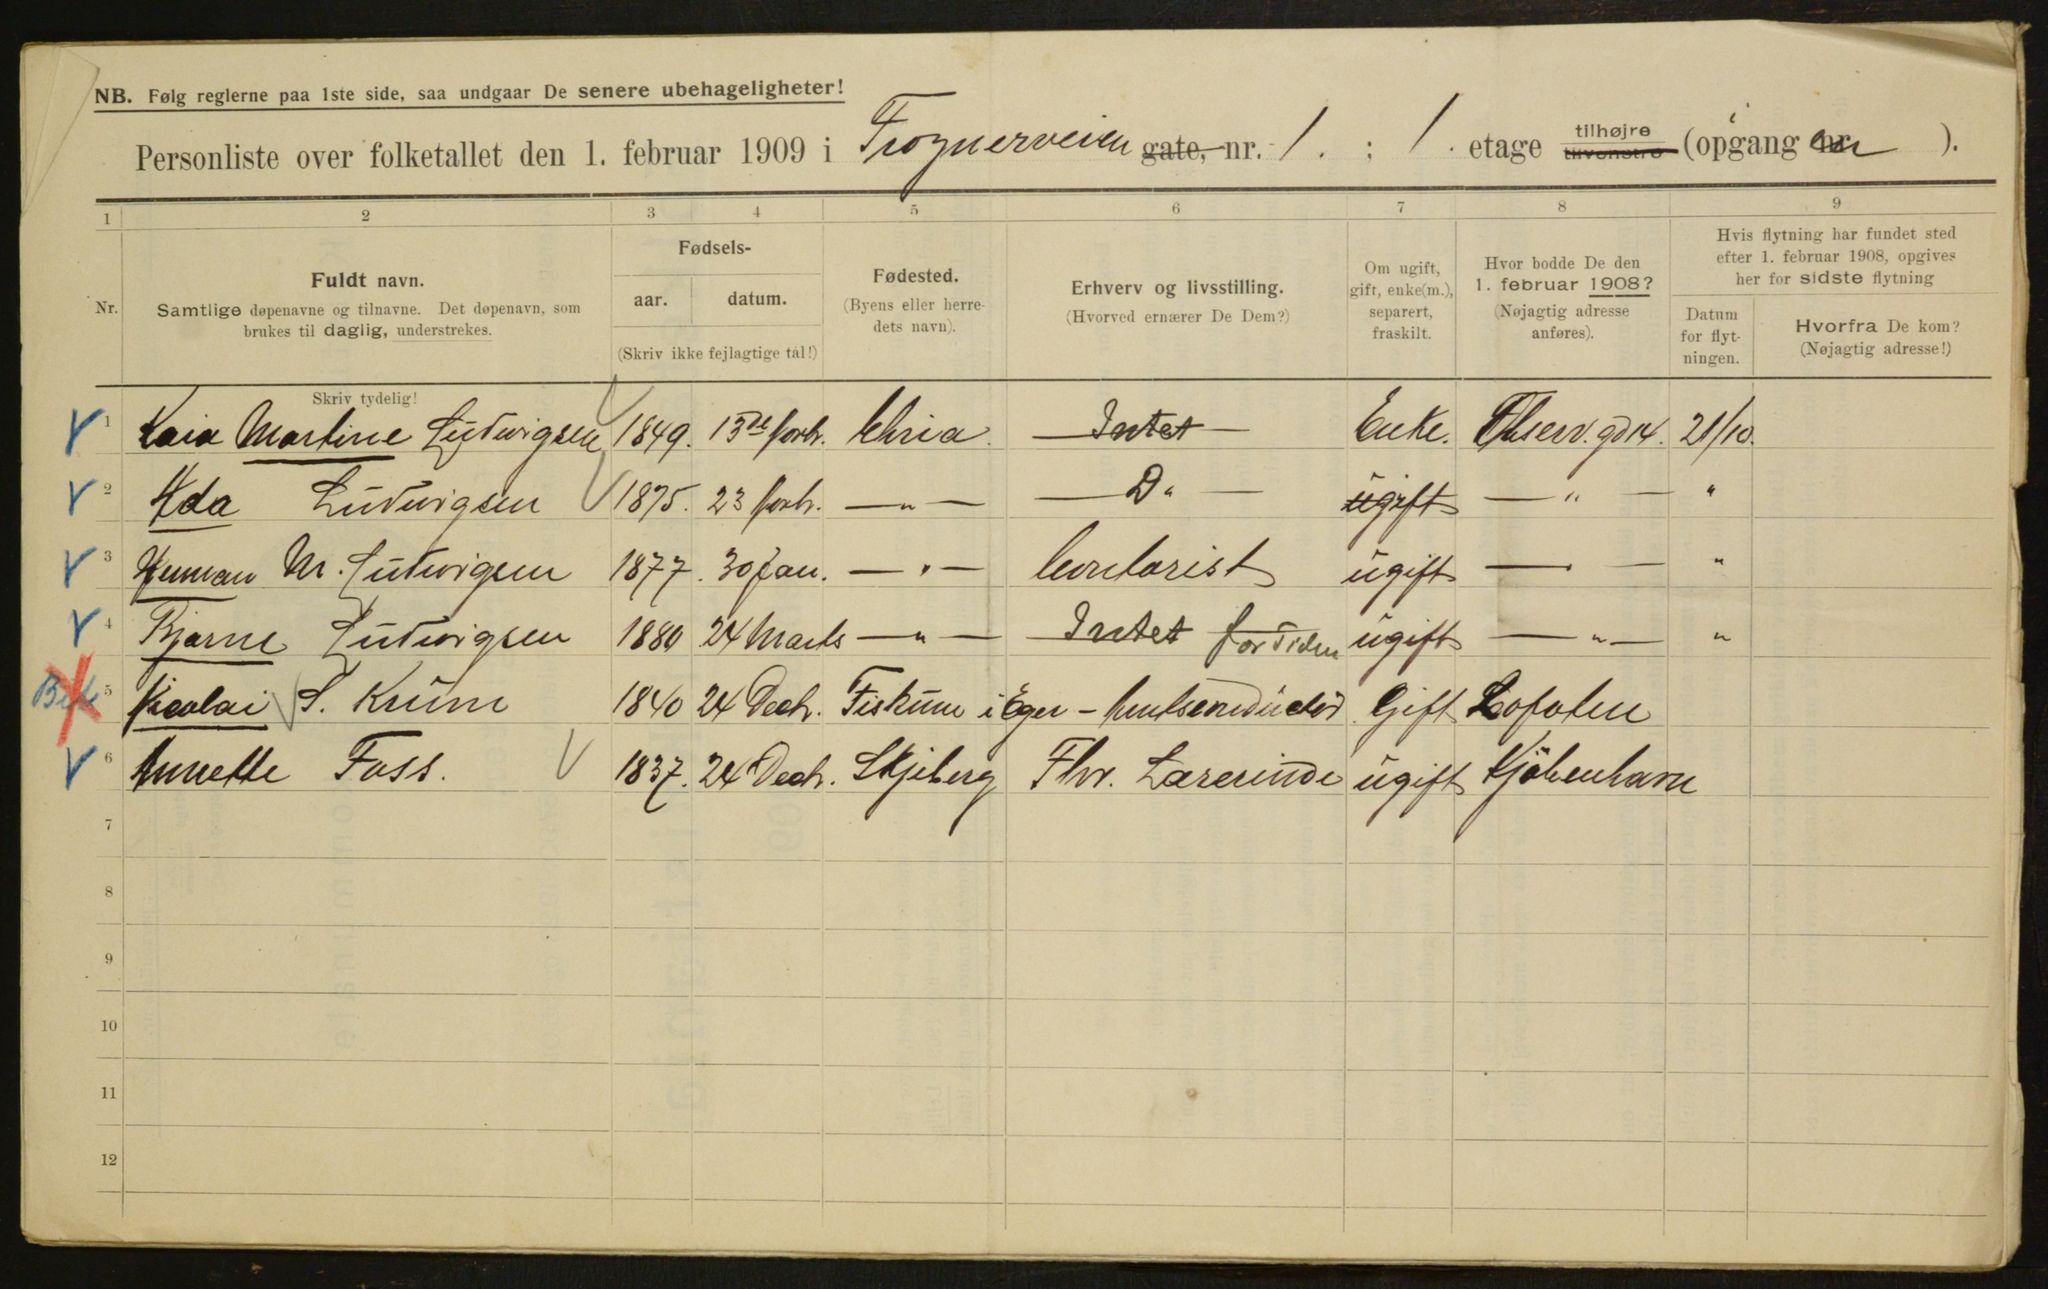 NB. Følg reglerne paa 1ste side, saa undgaar De senere ubehageligheter!
Personliste over folketallet den 1. februar 1909 i Frognerveien gate, nr. 1. : 1. etage tilhøjre tilvenstre (opgang nr ).
1 2 3 4 5 6 7 8 9
Nr.
Fuldt navn.
Samtlige døpenavne og tilnavne. Det døpenavn, som
brukes til daglig, understrekes.
Skriv tydelig!
Fødsels-
aar. datum.
(Skriv ikke fejlagtige tal!)
Fødested.
(Byens eller herre-
dets navn).
Erhverv og livsstilling.
(Hvorved ernærer De Dem?)
Om ugift,
gift, enke(m.),
separert,
fraskilt.
Hvor bodde De den
1. februar 1908?
(Nøjagtig adresse
anføres).
Hvis flytning har fundet sted
efter 1. februar 1908, opgives
her for sidste flytning
Datum
for flyt-
ningen.
Hvorfra De kom?
(Nøjagtig adresse!)
1 Kaia Martine Ludvigsen 1849. 13de febr. Chria. Intet Enke. Observ. gd 14. 21/10.
2 Ida Ludvigsen 1875. 23 febr. — " — — D" — ugift — " — "
3 Herman M. Ludvigsen 1877. 30 Jan. — " — Contorist ugift — " — "
4 Bjarne Ludvigsen 1880 24 Marts — " — Intet for tiden ugift — " — "
5 Nicolai S. Krum 1840 24 Decbr. Fiskum i Eger - Gift Lofoten
6 Annette Foss. 1837. 24 Decbr. Skjeberg Fhv. Lærerinde ugift Kjöbenhavn
7
8
9
10
11
12